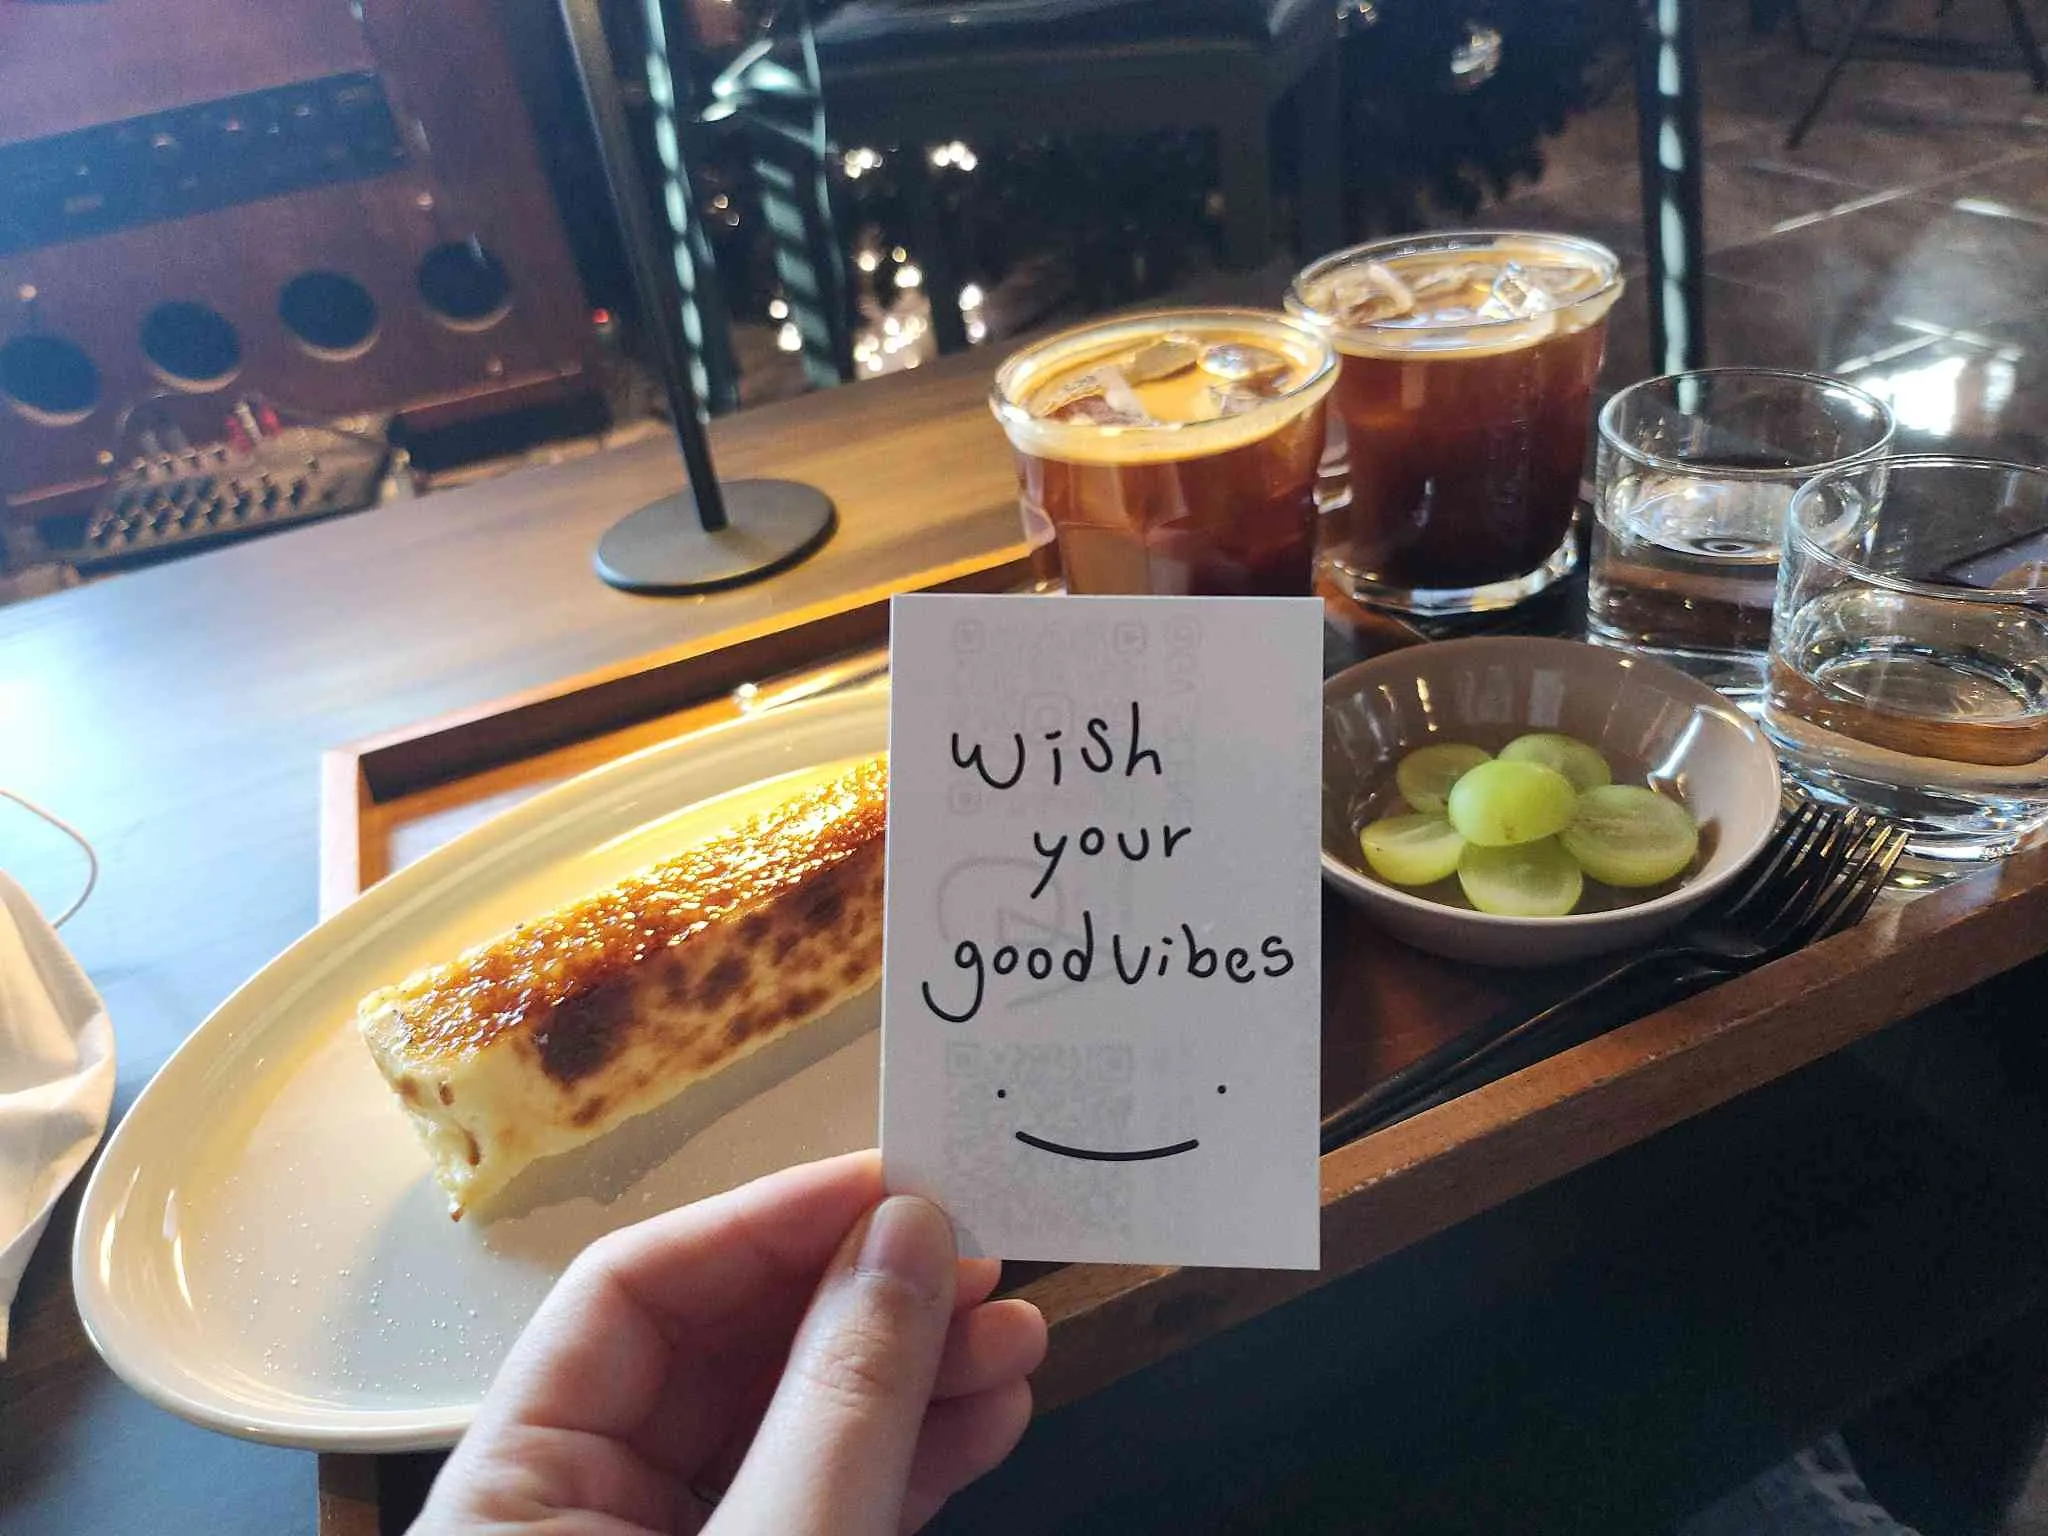 wish
your
good vibes